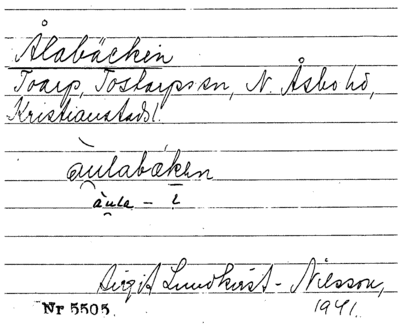 Ålabäcken
Toarp, Tostarps sn, N. Åsbo hd,
Kristianstads l.
àulabæken
àula – i
Birgit Lundkvist - Nilsson,
1941.
Nr 5505.